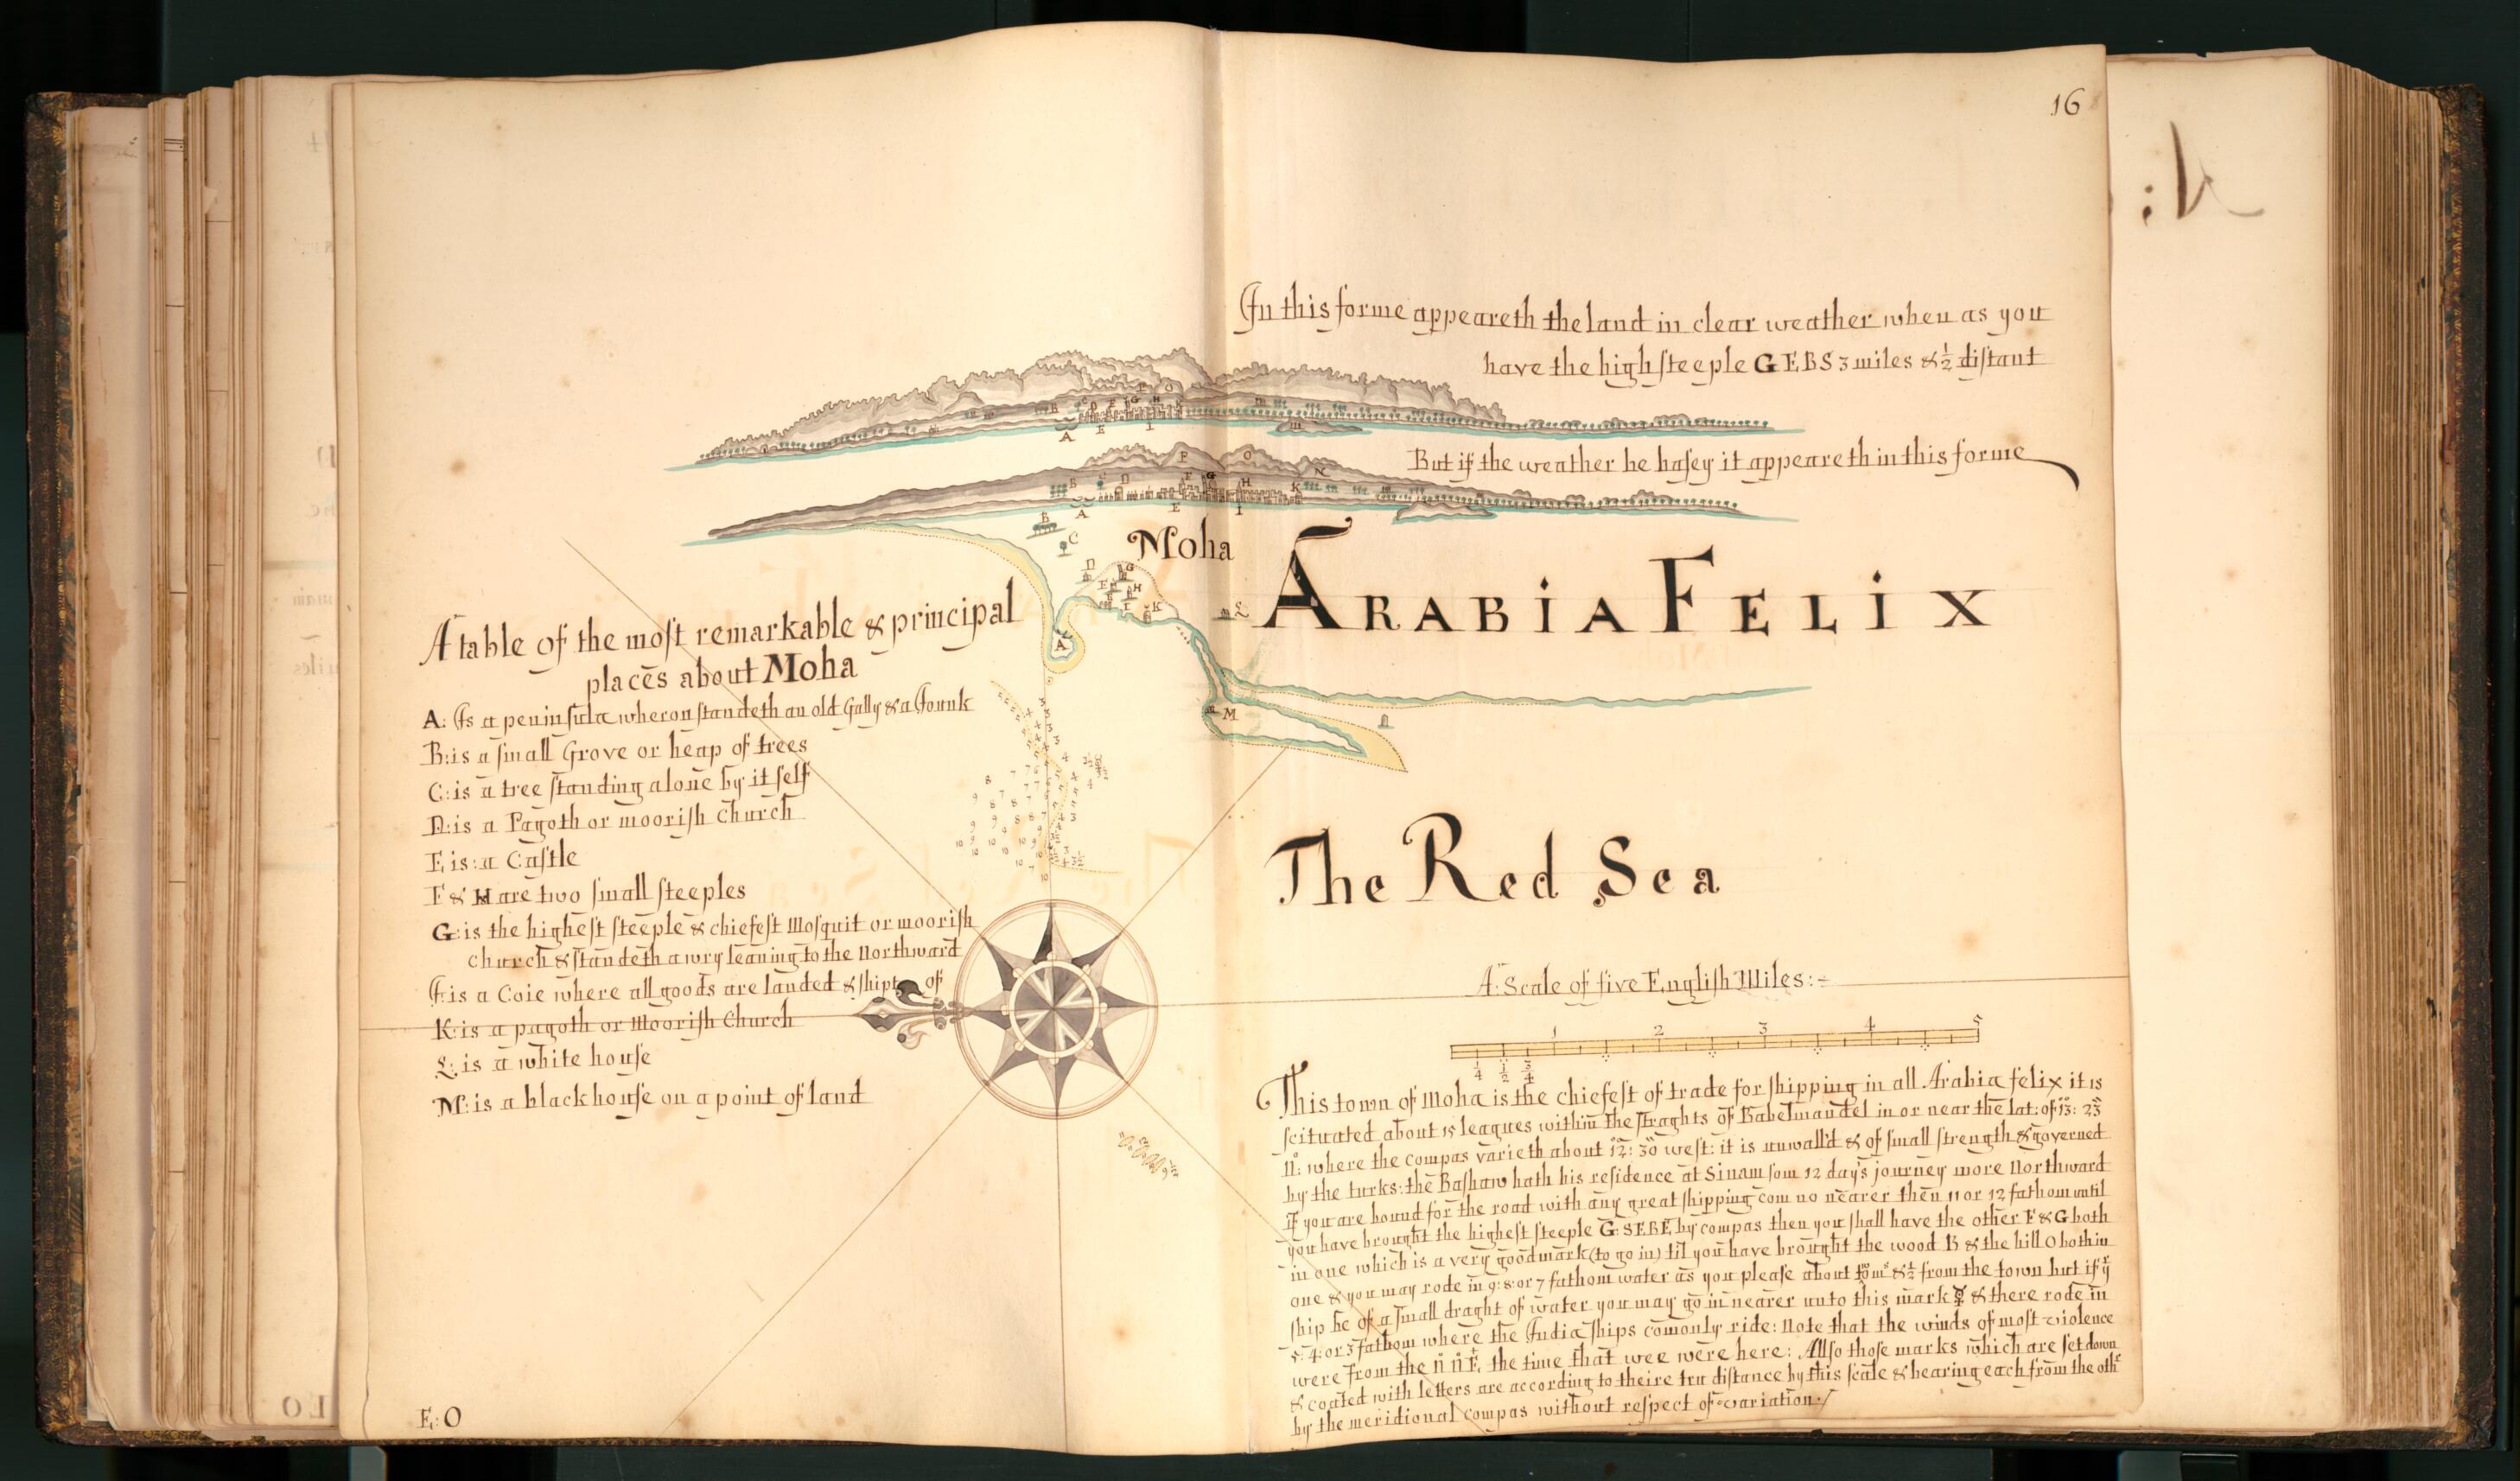 16
In this forme appeareth the land in clear weather when as you
have the high steeple G EBS 3 miles & ½ distant
But if the weather be hasey it appeareth in this forme
Moha
ARABIA FELIX
A table of the most remarkable & principal
places about Moha
A: Is a peninsula wheron standeth an old Gally & a Jounk
B: is a small Grove or heap of trees
C: is a tree standing alone by it self
D: is a Pagoth or moorish Church
E is: a Castle
F & H are two small steeples
G: is the highest steeple & chiefest Mosquit or moorish
church & standeth awry leaning to the Northward
I: is a Coie where all goods are landed & shipt of
K: is a pagoth or Moorish Church
L: is a white house
M: is a black house on a point of land
The Red Sea
A: Scale of five English Miles:
1 2 3 4 5
¼ ½ ¾
This town of Moha is the chiefest of trade for shipping in all Arabia felix it is
scituated about 15 leagues within the straghts of Babelmandel in or near the lat: of 13: 23
N: where the compas varieth about 12: 30 west: it is unwall'd & of small strength & governed
by the turks: the Bashaw hath his residence at Sinam som 12 day's journey more Northward
if you are bound for the road with any great shipping com no nearer then 11 or 12 fathom until
you have brought the highest steeple G: SEBE by compas then you shall have the other F & G both
in one which is a very good mark (to go in) til you have brought the wood B & the hill O both in
one & you may rode in 9: 8: or 7 fathom water as you please about & ½ from the town but if yr
ship be of a small draght of water you may go in nearer unto this mark & there rode in
5: 4: or 3 fathom where the India ships comonly ride: Note that the winds of most violence
were from the N N E, the time that wee were here: Allso those marks which are set down
& coated with letters are according to theire tru distance by this scale & bearing each from the othr
by the meridional compas without respect of variation:/
E: O